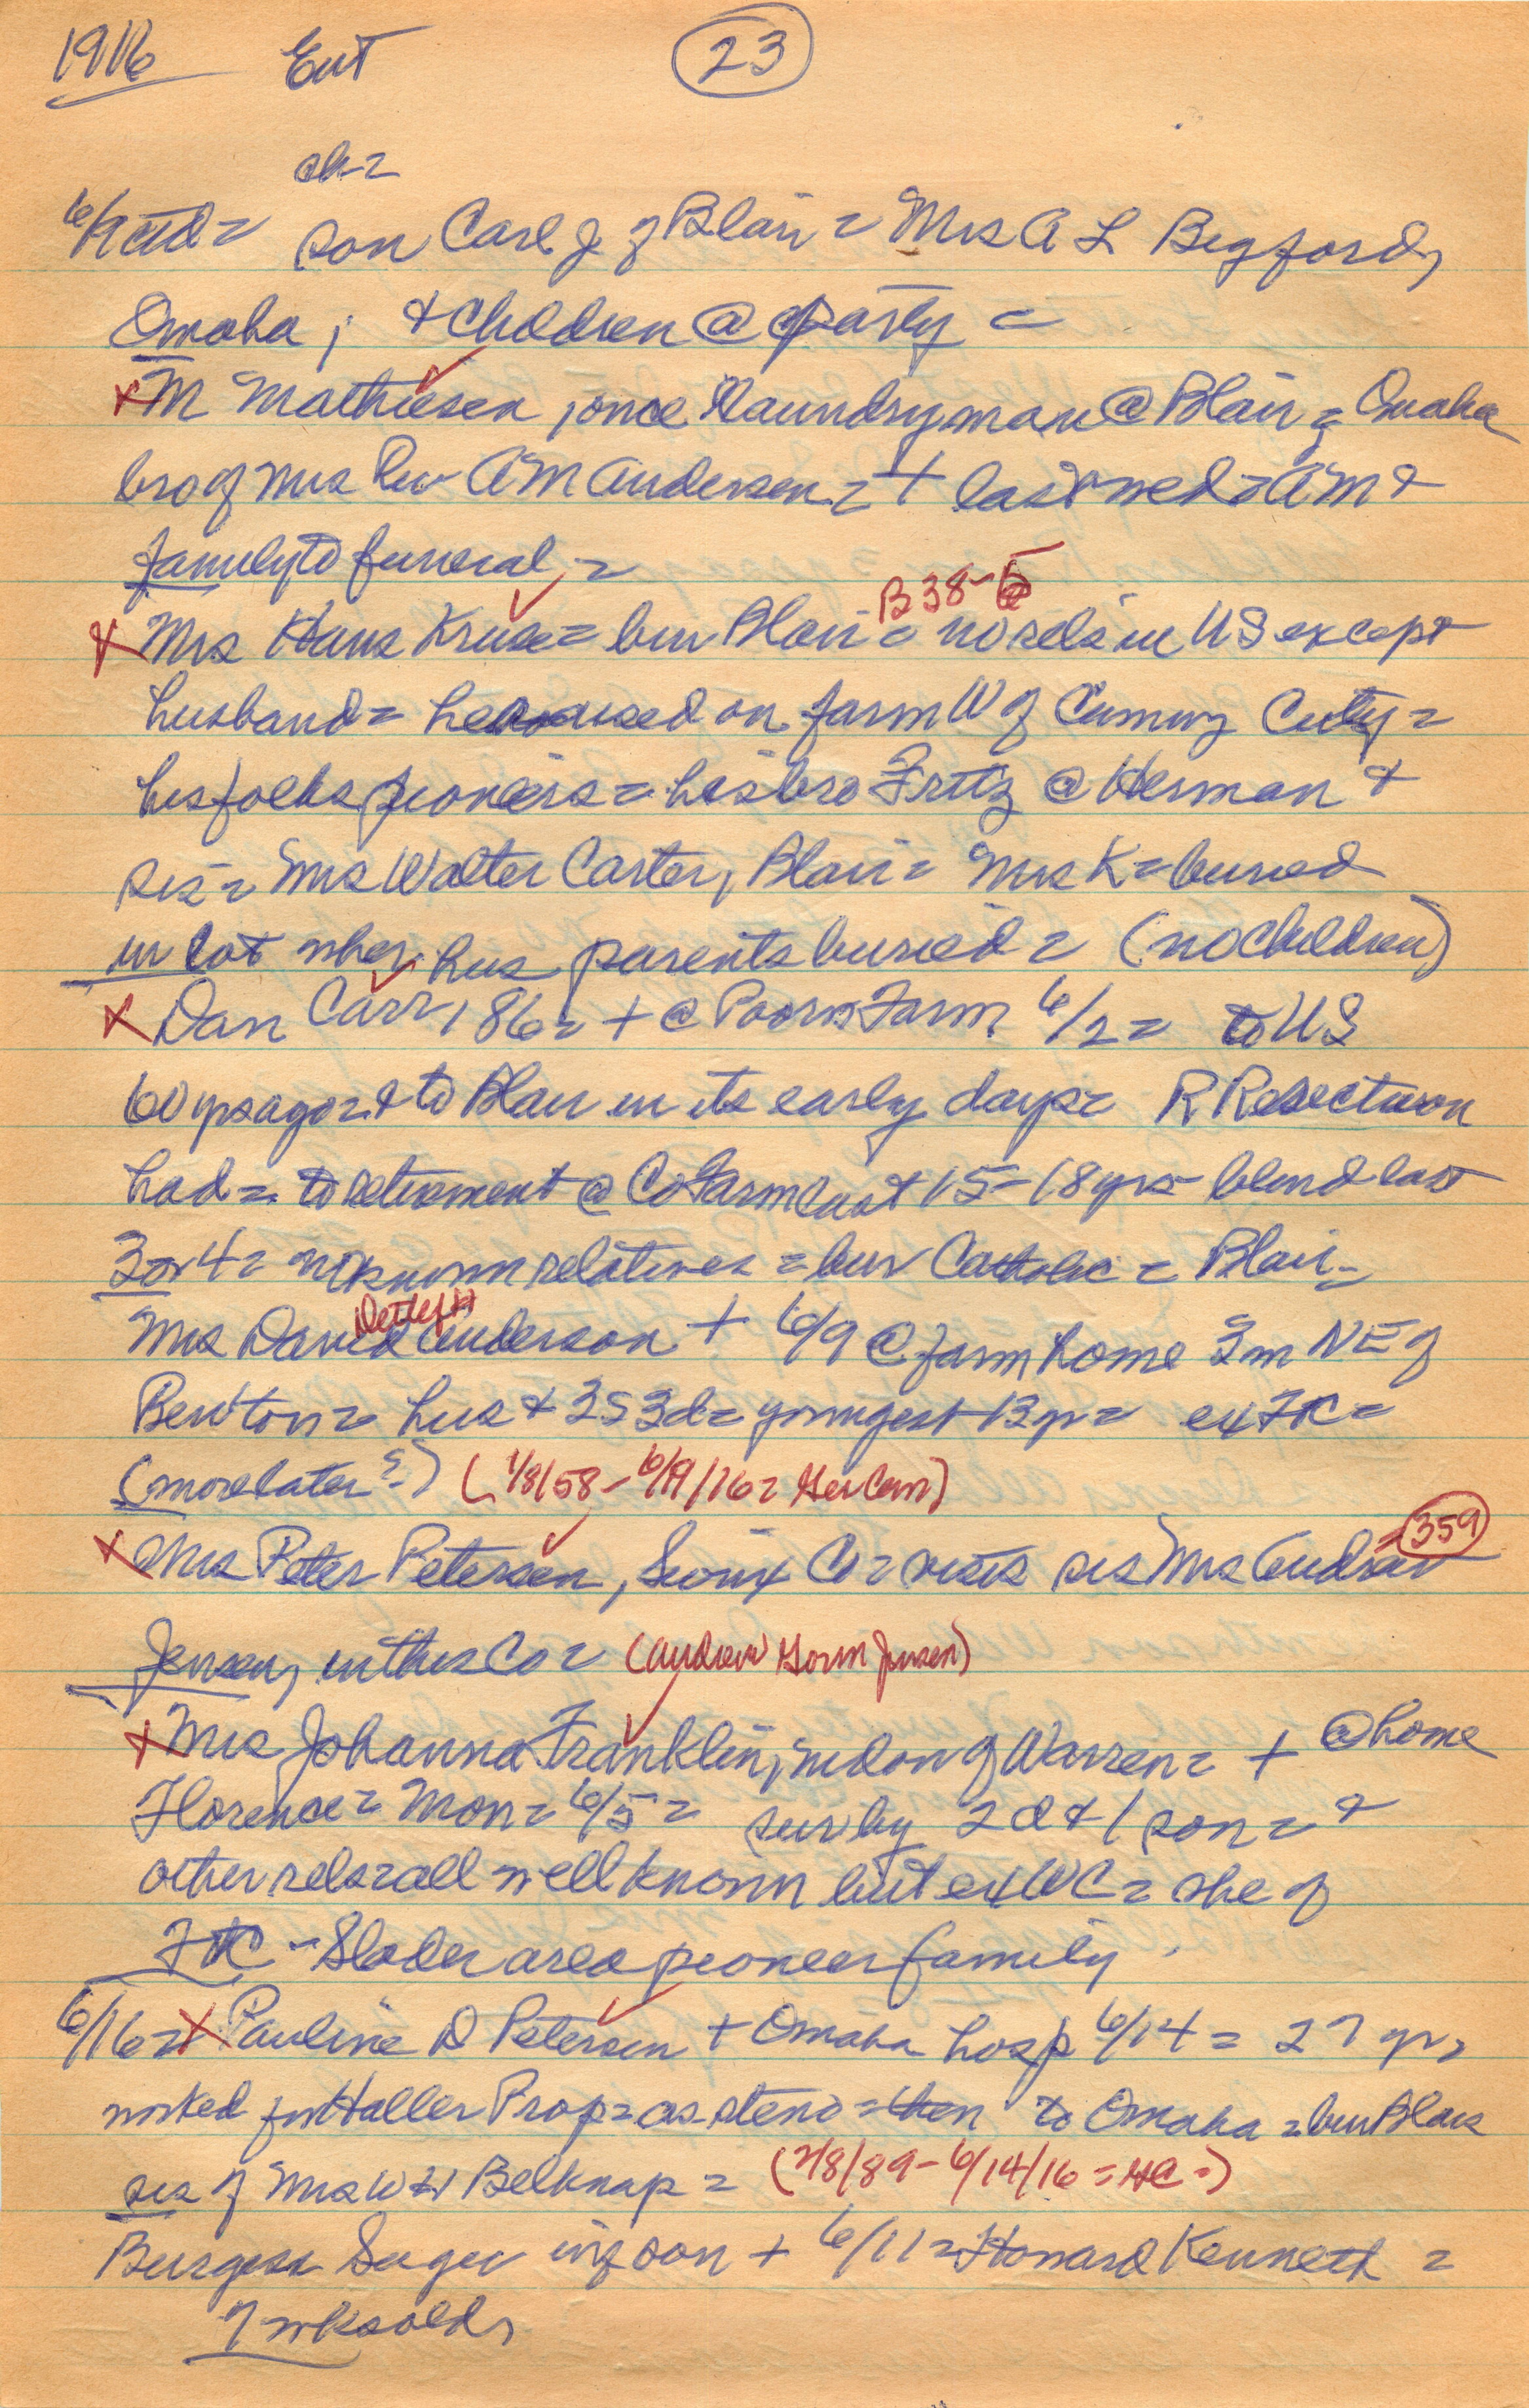 1916 Ent 23
ch=
6/9 ctd= son Carl J of Blair = Mrs A L Begford,
Omaha; + children @ party =
x M Mathiesen, once laundryman @ Blair = Omaha
bro of Mrs Rev AM Andersen = + last wed = AM &
family to funeral =
B38-6
x Mrs Hans Kruse = bur Blair = no rels in US except
husband = he raised on farm W of Cuming City =
his folks pioneers = his bro Fritz @ Herman &
sis = Mrs Walter Carter, Blair = Mrs K = buried
in lot wher hus parents buried = (no children)
x Dan Carr, 86 = + @ Poor Farm 6/2 = to US
60 yrs ago = & to Blair in its early days = RR section
had = to retirement @ Co Farm last 15-18 yrs - blind last
3 or 4 = no known relatives = bur Catholic = Blair -
Detlef H
Mrs David Anderson + 6/9 @ farm home 3 m NE of
Benton = hus + 3s 3d = youngest 13 yr = ex FtC =
(more later?) (1/8/58 - 6/9/16 = Ger Cem)
359
x Mrs Peter Petersen, Sioux Co = visits sis Mrs Andrew
Jensen, in this Co = (Andrew Gorm Jensen)
x Mrs Johanna Franklin, widow of Warren = + @ home
Florence = Mon = 6/5 = sur by 2 d + 1 son = &
other rels = all well known but ex WC = she of
FtC - Slader area pioneer family.
6/16 = x Pauline D Petersen + Omaha hosp 6/14 = 27 yr,
worked for Haller Prop = as steno = then to Omaha = bur Blair
sis of Mrs W H Belknap = (2/8/89 - 6/14/16 = HC -)
Burgess inf son + 6/11 = Howard Kenneth =
7 wks old,